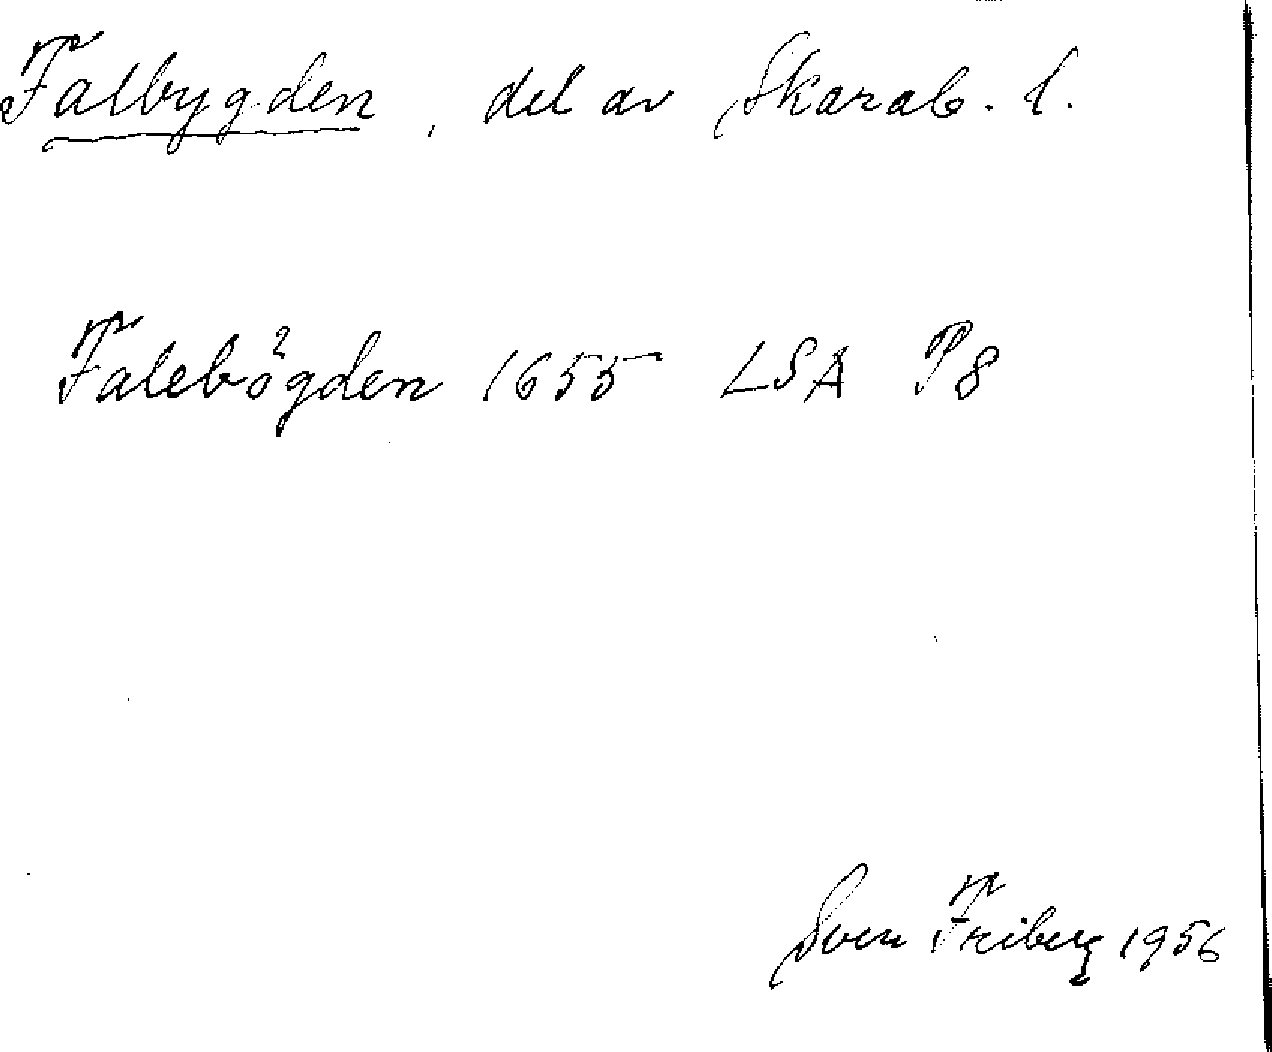 Falbygden, del av Skarab. l.
Falebögden 1655 LSA P8
Sven Friberg 1956